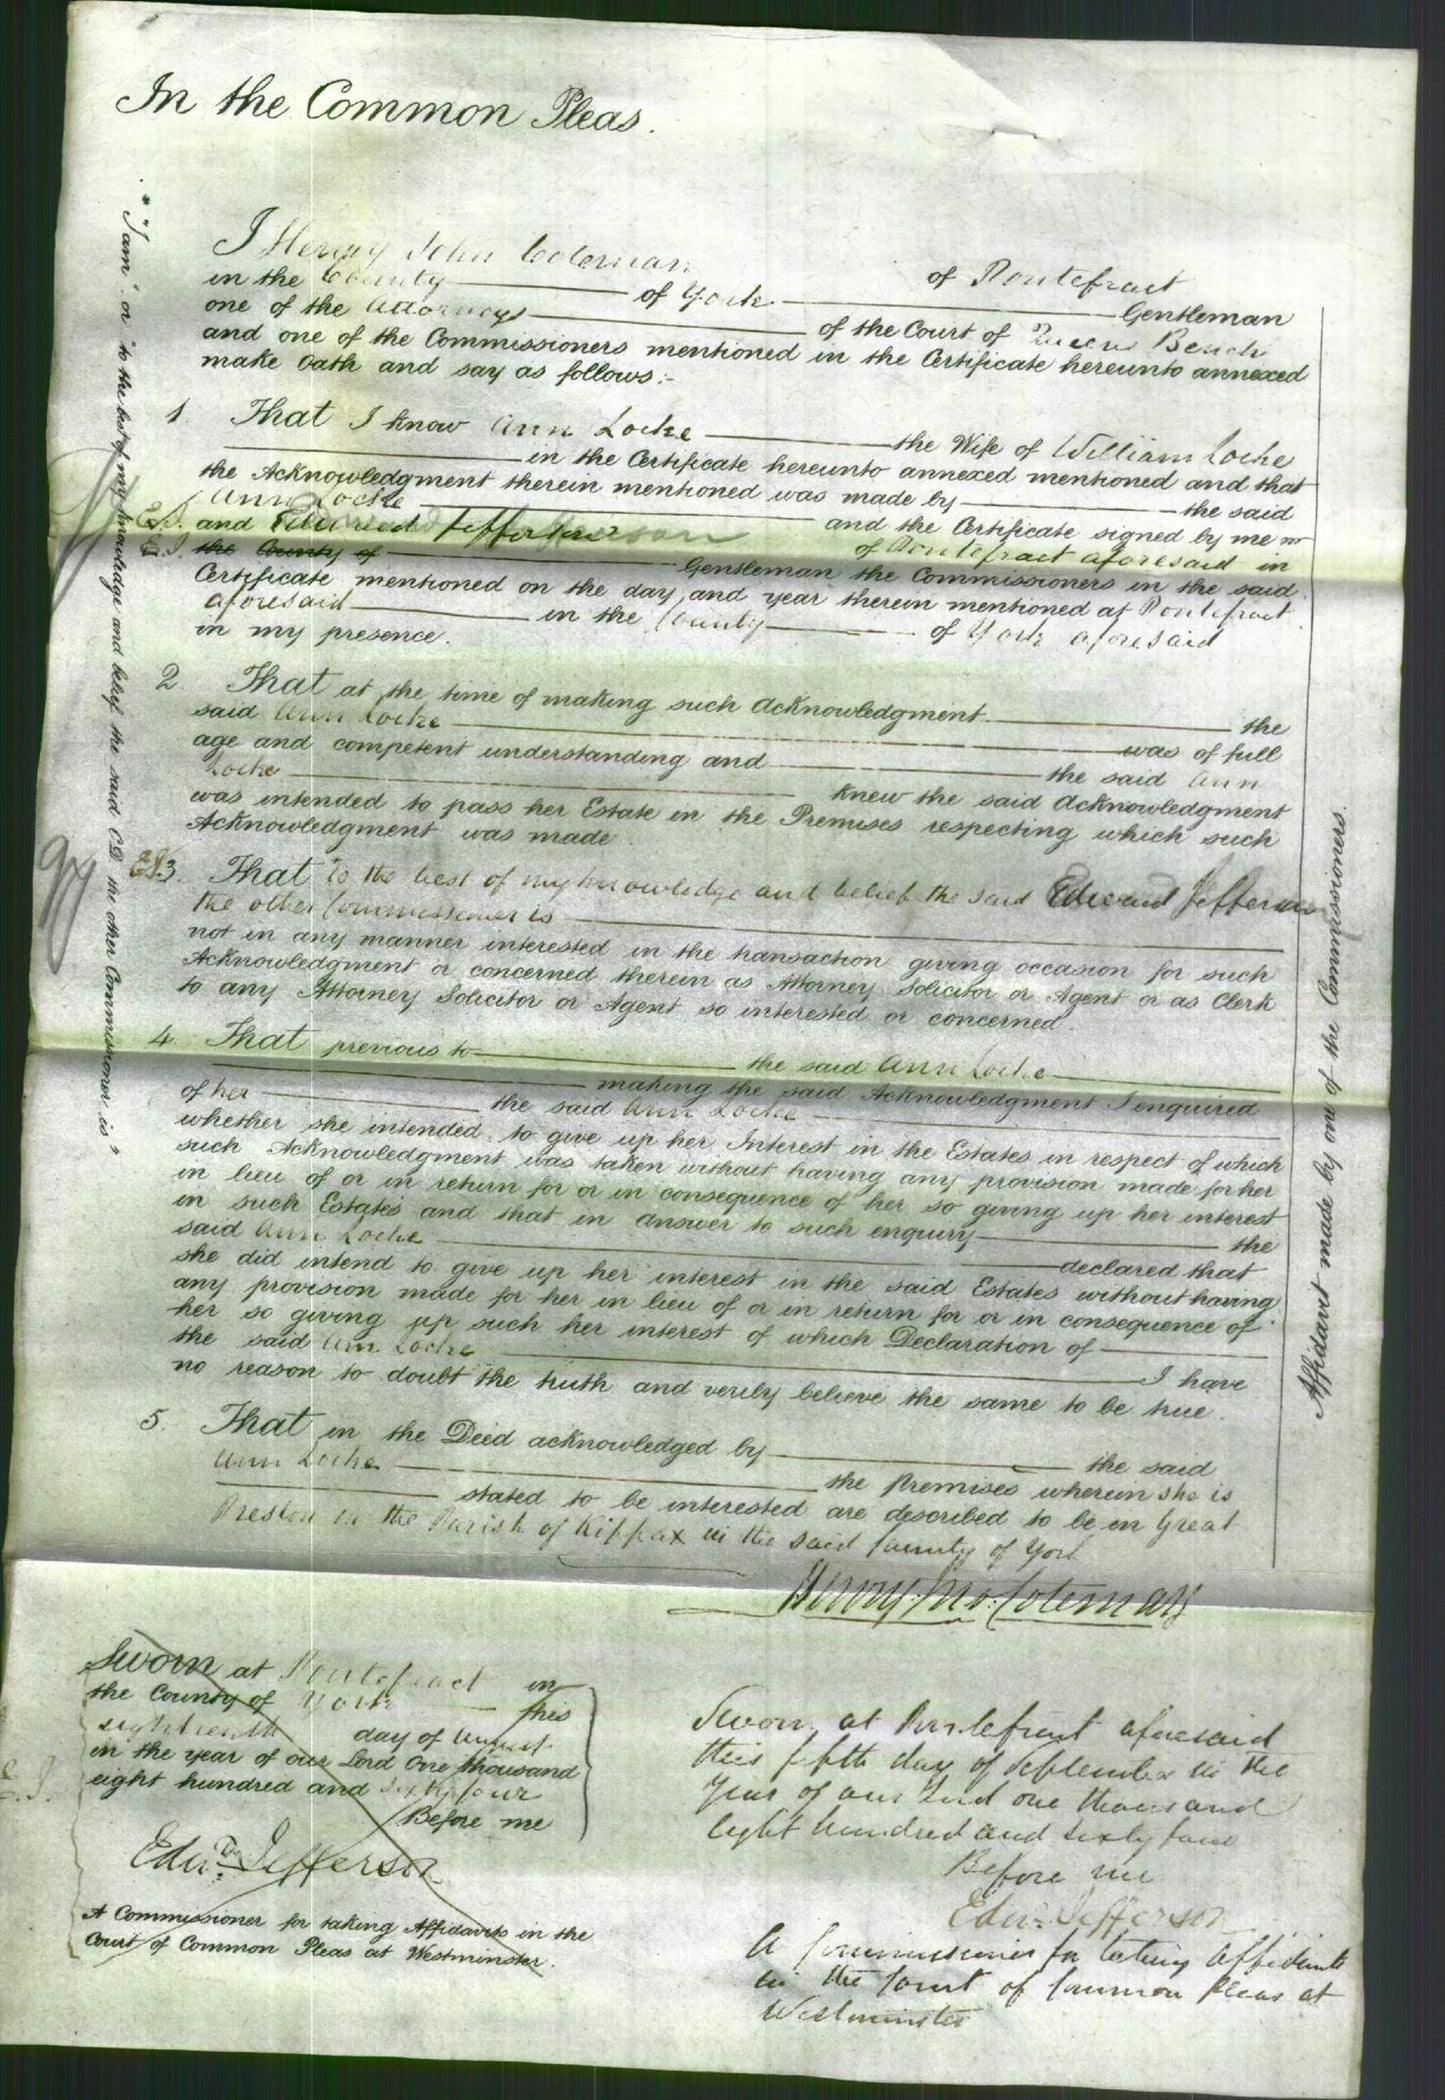 In the Common Pleas.
I Henry John Coleman of Pontefract
in the County of York Gentleman
one of the Attorneys of the Court of Queens Bench
and one of the Commissioners mentioned in the Certificate hereunto annexed
make Oath and say as follows:-
1. That I know Ann Locke the Wife of William Locke
in the Certificate hereunto annexed mentioned and that
the Acknowledgment therein mentioned was made by the said
Ann Locke and the Certificate signed by me
E.J. and Edward Jefferson of Pontefract aforesaid in
E.J. the County of Gentleman the Commissioners in the said
Certificate mentioned on the day and year therein mentioned at Pontefract
aforesaid in the County of York aforesaid
in my presence.
2. That at the time of making such Acknowledgment the
said Ann Locke was of full
age and competent understanding and the said Ann
Locke knew the said Acknowledgment
was intended to pass her Estate in the Premises respecting which such
Acknowledgment was made
E.J. 3. That to the best of my knowledge and belief the said Edward Jefferson
the other Commissioner is
not in any manner interested in the transaction giving occasion for such
Acknowledgment or concerned therein as Attorney Solicitor or Agent or as Clerk
to any Attorney Solicitor or Agent so interested or concerned.
4. That previous to the said Ann Locke
making the said Acknowledgment I enquired
of her the said Ann Locke
whether she intended to give up her Interest in the Estates in respect of which
such Acknowledgment was taken without having any provision made for her
in lieu of or in return for or in consequence of her so giving up her interest
in such Estates and that in answer to such enquiry the
said Ann Locke declared that
she did intend to give up her interest in the said Estates without having
any provision made for her in lieu of or in return for or in consequence of
her so giving up such her interest of which Declaration of
the said Ann Locke I have
no reason to doubt the truth and verily believe the same to be true.
5. That in the Deed acknowledged by the said
Ann Locke the Premises wherein she is
stated to be interested are described to be in Great
Preston in the Parish of Kippax in the said County of York
Henry Jno: Coleman
Sworn at Pontefract in
the County of York this
eighteenth day of August
in the year of our Lord One thousand
eight hundred and sixty four
Before me
Edwd. Jefferson
A Commissioner for taking Affidavits in the
Court of Common Pleas at Westminster.
Sworn at Pontefract aforesaid
this fifth day of September in the
Year of our Lord one thousand
eight hundred and sixty four
Before me
Edwd. Jefferson
A Commissioner for taking Affidavits
in the Court of Common Pleas at
Westminster
* "I am" or "to the best of my knowledge and belief the said CD the other Commissioner is"
Affidavit made by one of the Commissioners.